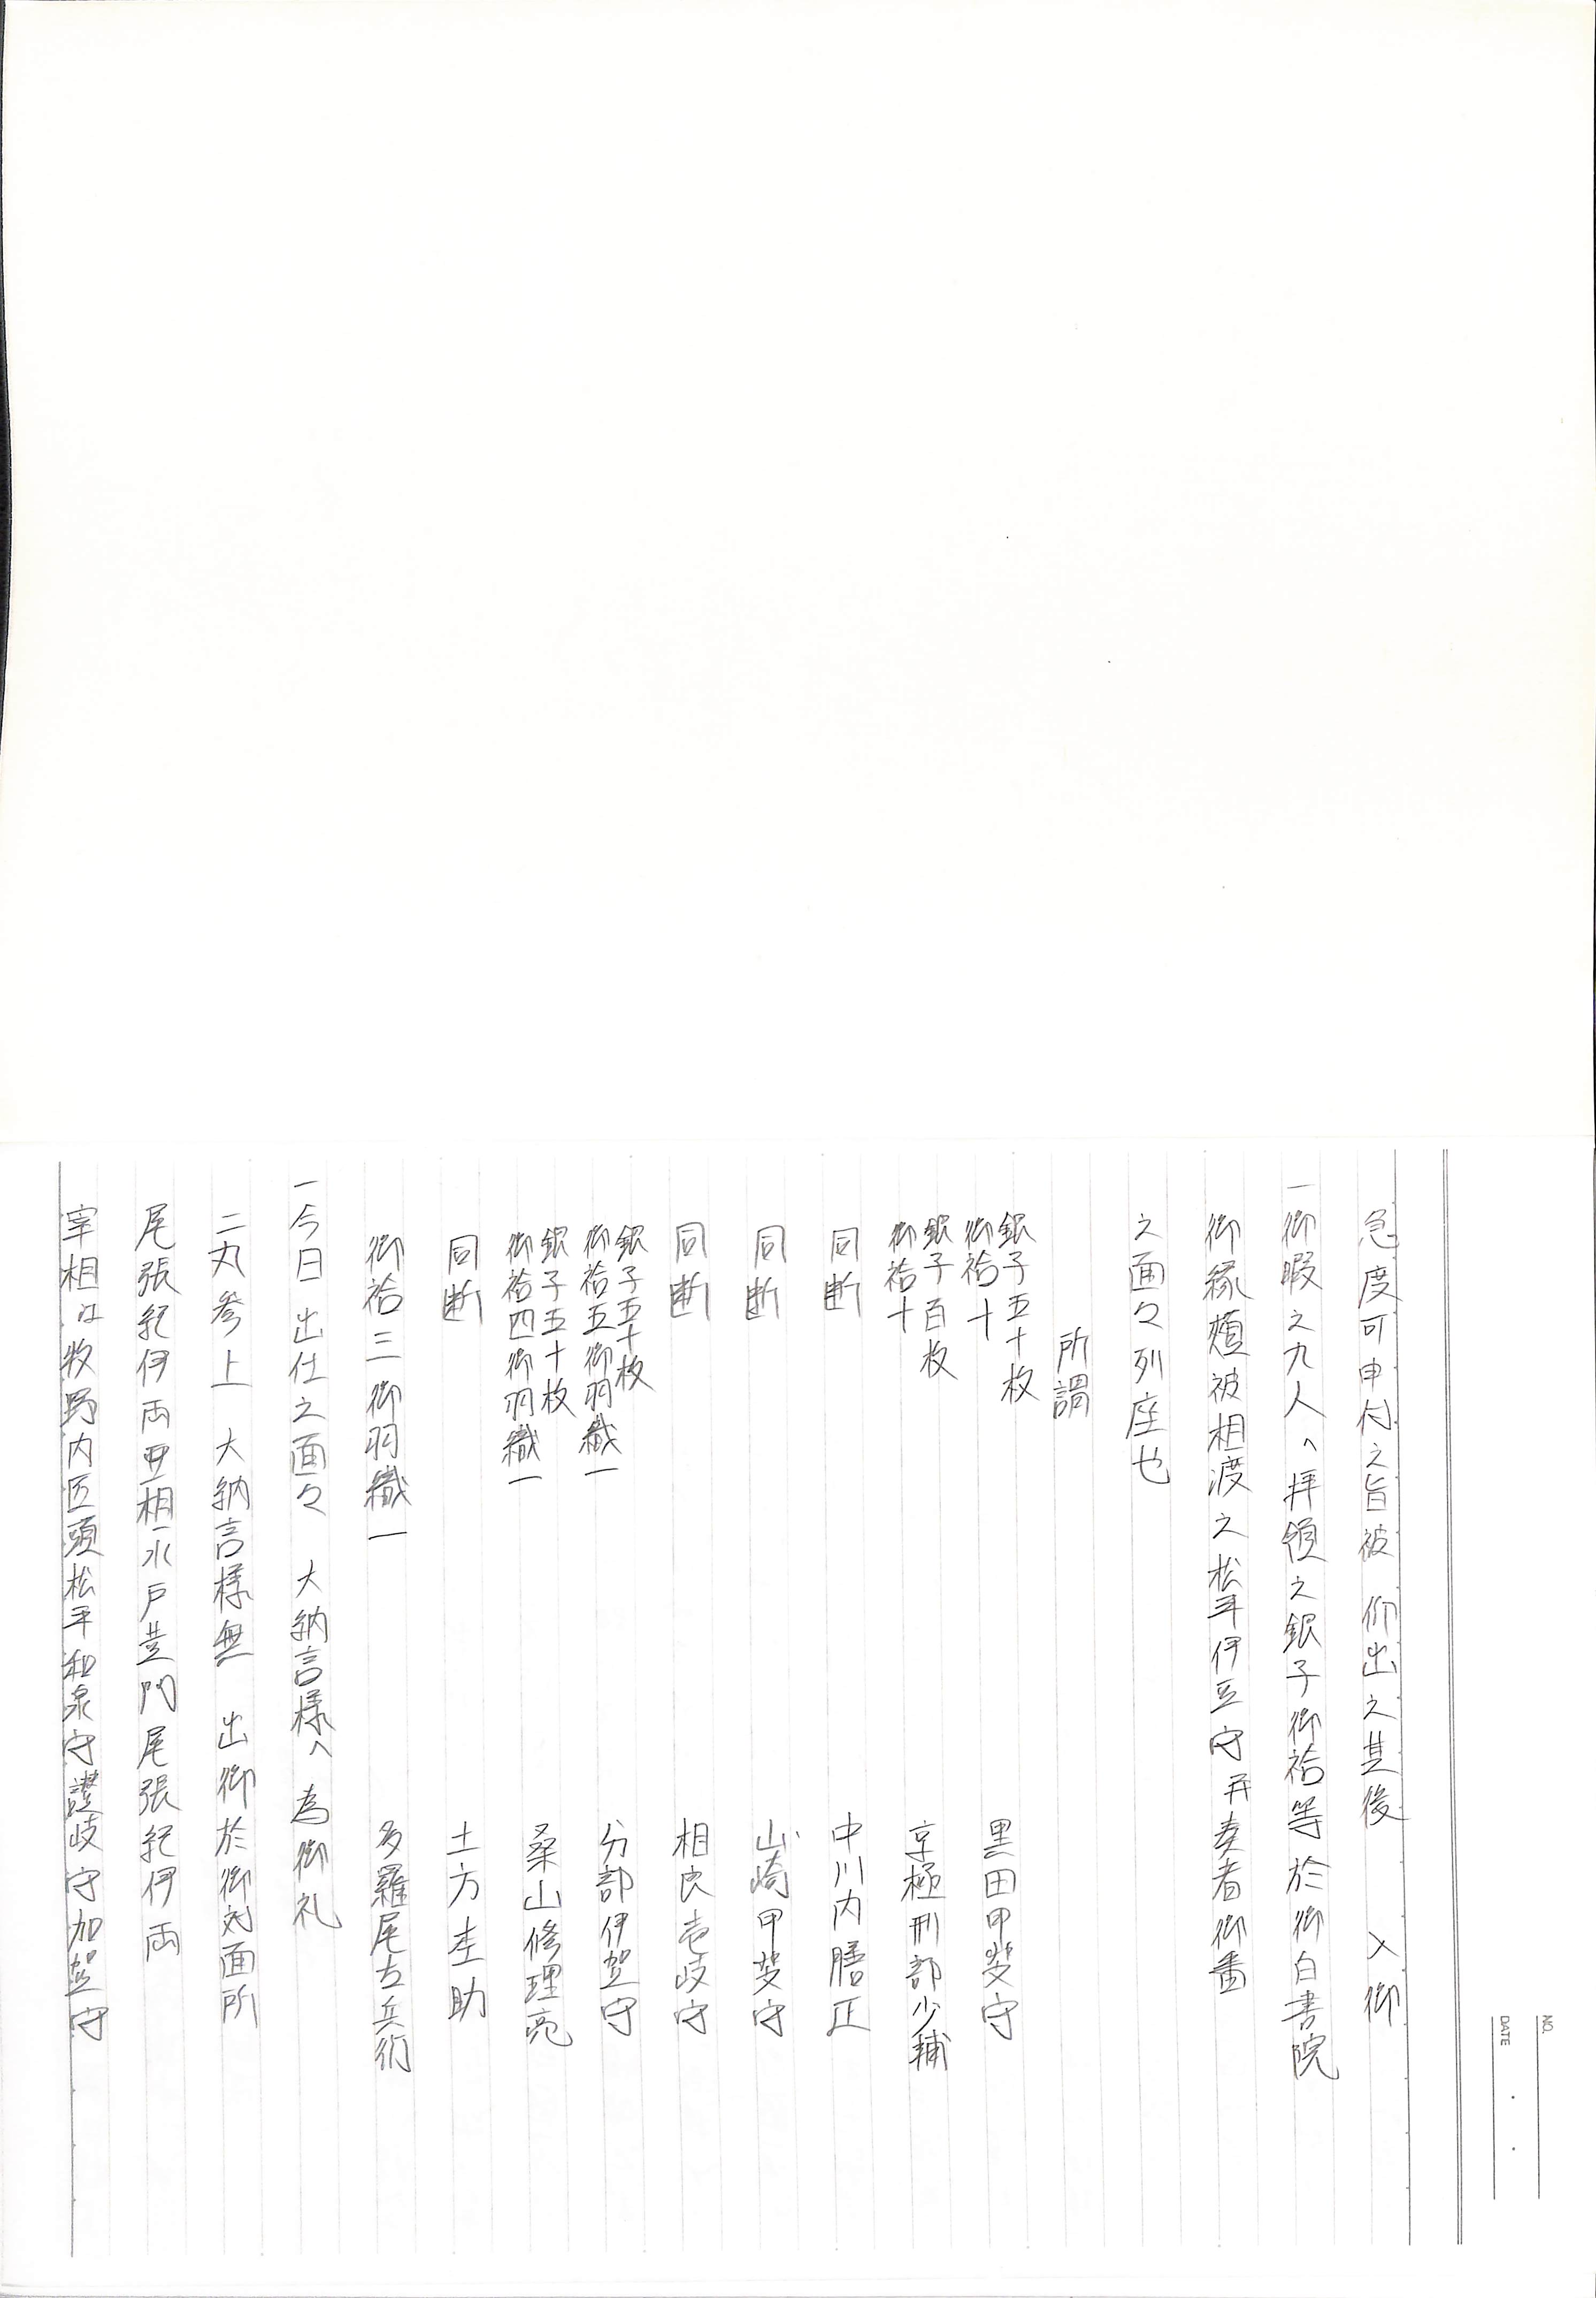 NO.
DATE
急度可申付之旨被 仰出之其後 入御
一御暇之九人へ拝領之銀子御袷等於御白書院
御縁頬被相渡之松平伊豆守并奏者御番
之面々列座也
所謂
銀子五十枚
御袷十 黒田甲斐守
銀子百枚
御袷十 京極刑部少輔
同断 中川内膳正
同断 山崎甲斐守
同断 相良壱岐守
銀子五十枚
御袷五御羽織一 分部伊賀守
銀子五十枚
御袷四御羽織一 桑山修理亮
同断 土方杢助
御袷三御羽織一 多羅尾左兵衛
一今日出仕之面々 大納言様へ為御礼
二丸参上 大納言様無 出御於御対面所
尾張紀伊両亜相水戸黄門尾張紀伊両
宰相は牧野内匠頭松平和泉守讃岐守加賀守